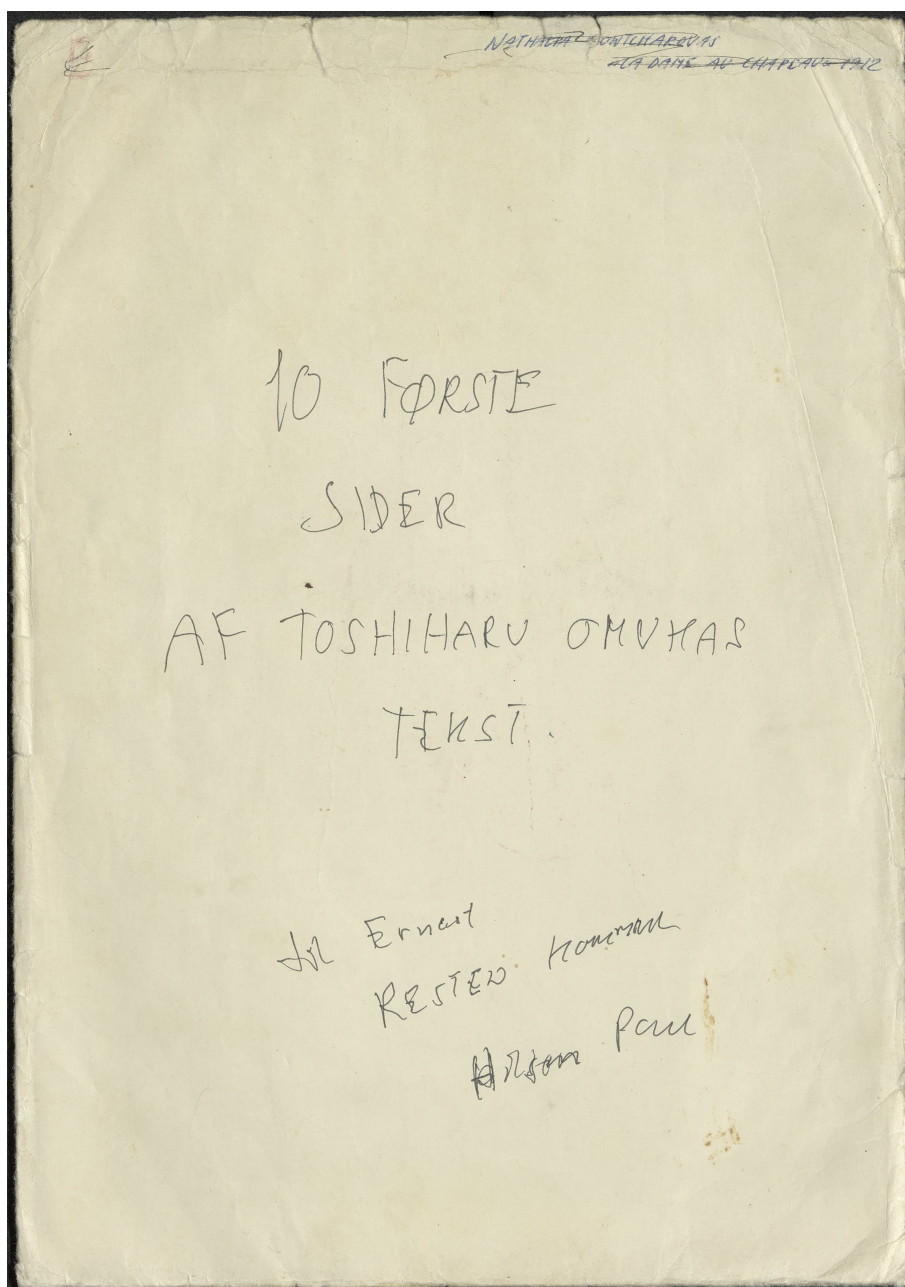 NATHALIA GONTCHAROVAS
LA DAME AU CHAPEAU 1912
10 FØRSTE
SIDER
AF TOSHIHARU OMUKAS
TEKST.
til Ernest
RESTEN kommer
Hilsen Paul